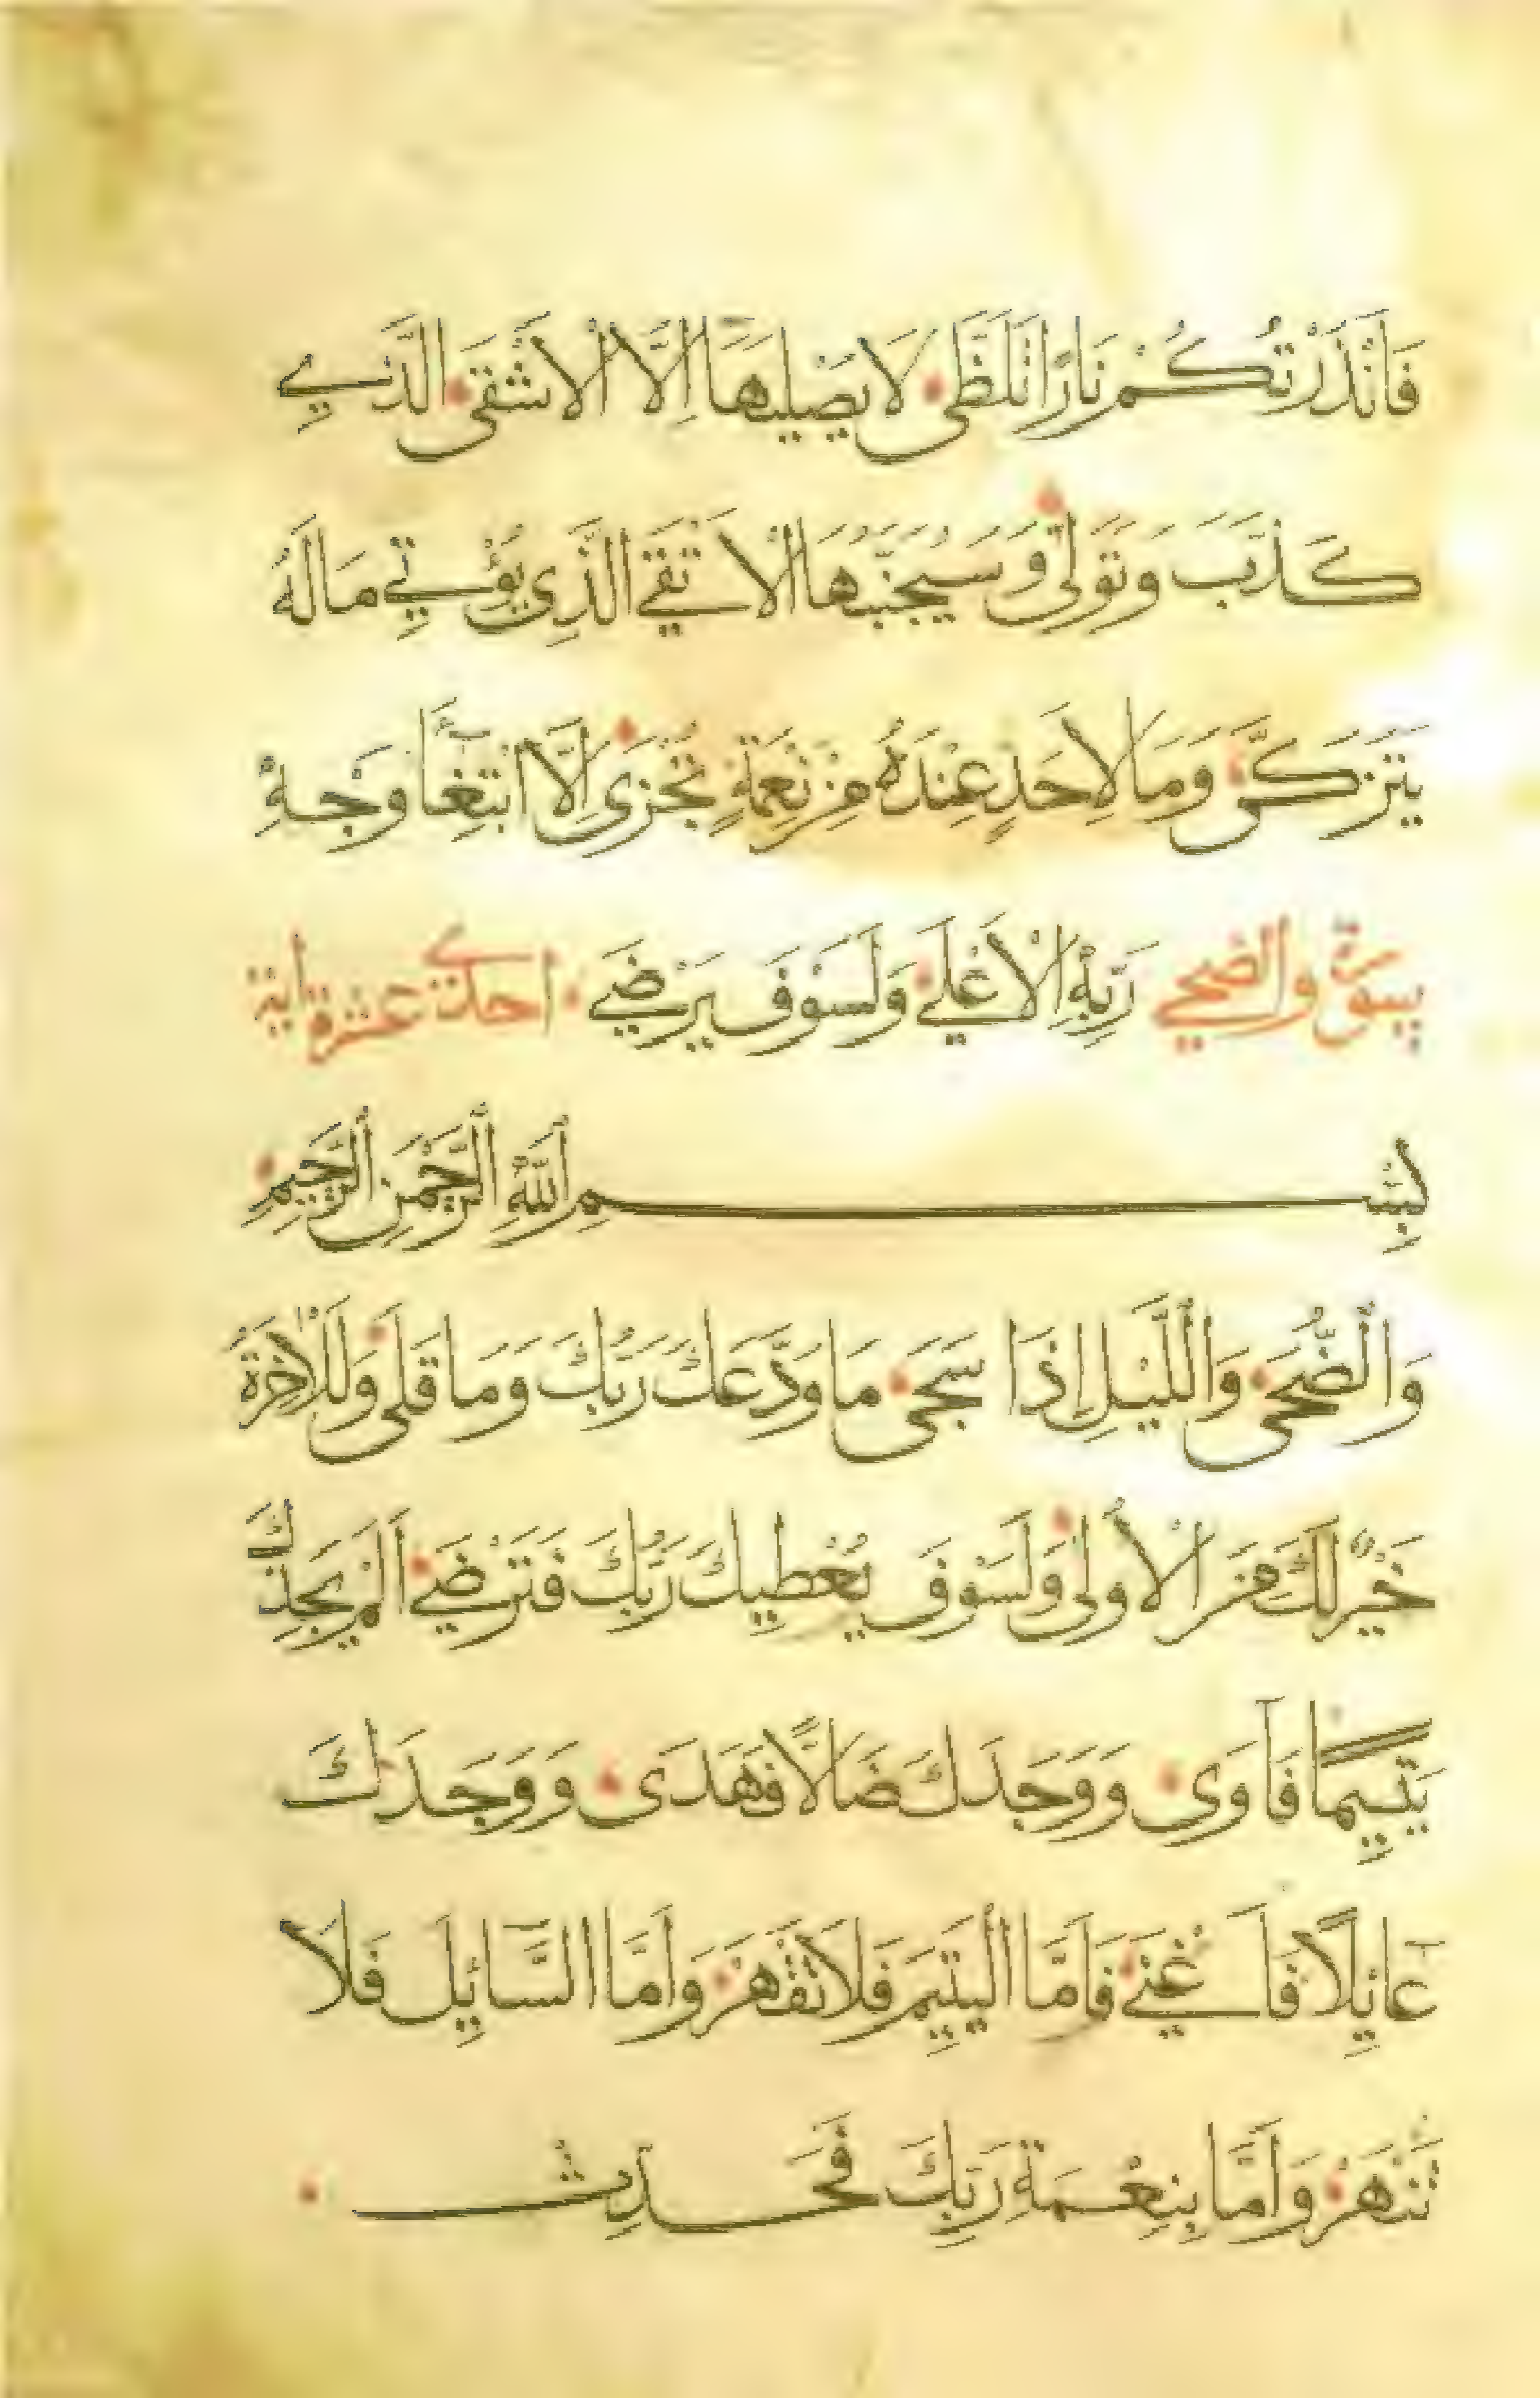 فَاَنْذَرْتُكُمْ نَارًا تَلَظَّى لَا يَصْلَيهَا اِلَّا الْاَشْقَى الَّذِي
كَذَّبَ وَتَوَلَّى وَسَيُجَنَّبُهَا الْاَتْقَى الَّذِي يُؤْتِي مَالَهُ
يَتَزَكَّى وَمَا لِاَحَدٍ عِنْدَهُ مِنْ نِعْمَةٍ تُجْزَى اِلَّا ابْتِغَاءَ وَجْهِ
رَبِّهِ الْاَعْلَى وَلَسَوْفَ يَرْضَى احدى عشرة اية سورة والضحى
بِسْمِ اللّٰهِ الرَّحْمٰنِ الرَّحِيمِ
وَالضُّحَى وَاللَّيْلِ اِذَا سَجَى مَا وَدَّعَكَ رَبُّكَ وَمَا قَلَى وَلَلْاٰخِرَةُ
خَيْرٌ لَكَ مِنَ الْاُولَى وَلَسَوْفَ يُعْطِيكَ رَبُّكَ فَتَرْضَى اَلَمْ يَجِدْكَ
يَتِيمًا فَآوَى وَوَجَدَكَ ضَالًّا فَهَدَى وَوَجَدَكَ
عَايِلًا فَاَغْنَى فَاَمَّا الْيَتِيمَ فَلَا تَقْهَرْ وَاَمَّا السَّايِلَ فَلَا
تَنْهَرْ وَاَمَّا بِنِعْمَةِ رَبِّكَ فَحَدِّثْ